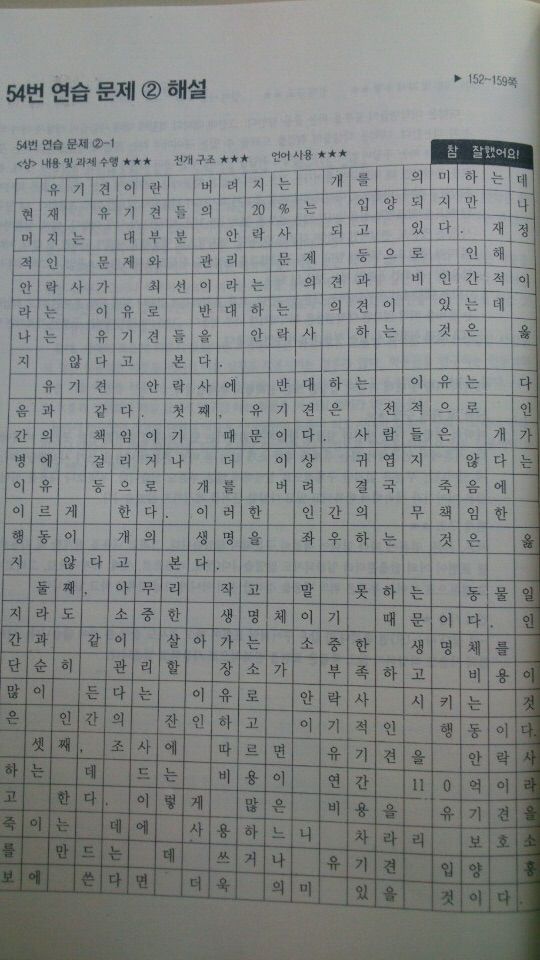 ▶ 152~159쪽
54번 연습 문제 ② 해설
54번 연습 문제 ②-1
<상> 내용 및 과제 수행 ★★★ 전개 구조 ★★★ 언어 사용 ★★★ 참 잘했어요!
유기견이란 버려지는 개를 의미하는데
현재 유기견들의 20%는 입양되지만 나
머지는 대부분 안락사 되고 있다. 재정
적인 문제와 관리 문제 등으로 인해
안락사가 최선이라는 의견과 비인간적이
라는 이유로 반대하는 의견이 있는데
나는 유기견들을 안락사 하는 것은 옳
지 않다고 본다.
유기견 안락사에 반대하는 이유는 다
음과 같다. 첫째, 유기견은 전적으로 인
간의 책임이기 때문이다. 사람들은 개가
병에 걸리거나 더 이상 귀엽지 않다는
이유 등으로 개를 버려 결국 죽음에
이르게 한다. 이러한 인간의 무책임한
행동이 개의 생명을 좌우하는 것은 옳
지 않다고 본다.
둘째, 아무리 작고 말 못하는 동물일
지라도 소중한 생명체이기 때문이다. 인
간과 같이 살아가는 소중한 생명체를
단순히 관리할 장소가 부족하고 비용이
많이 든다는 이유로 안락사 시키는 것
은 인간의 잔인하고 이기적인 행동이다.
셋째, 조사에 따르면 유기견을 안락사
하는 데 드는 비용이 연간 110억이라
고 한다. 이렇게 많은 비용을 유기견을
죽이는 데에 사용하느니 차라리 보호소
를 만드는 데 쓰거나 유기견 입양 홍
보에 쓴다면 더욱 의미 있을 것이다.